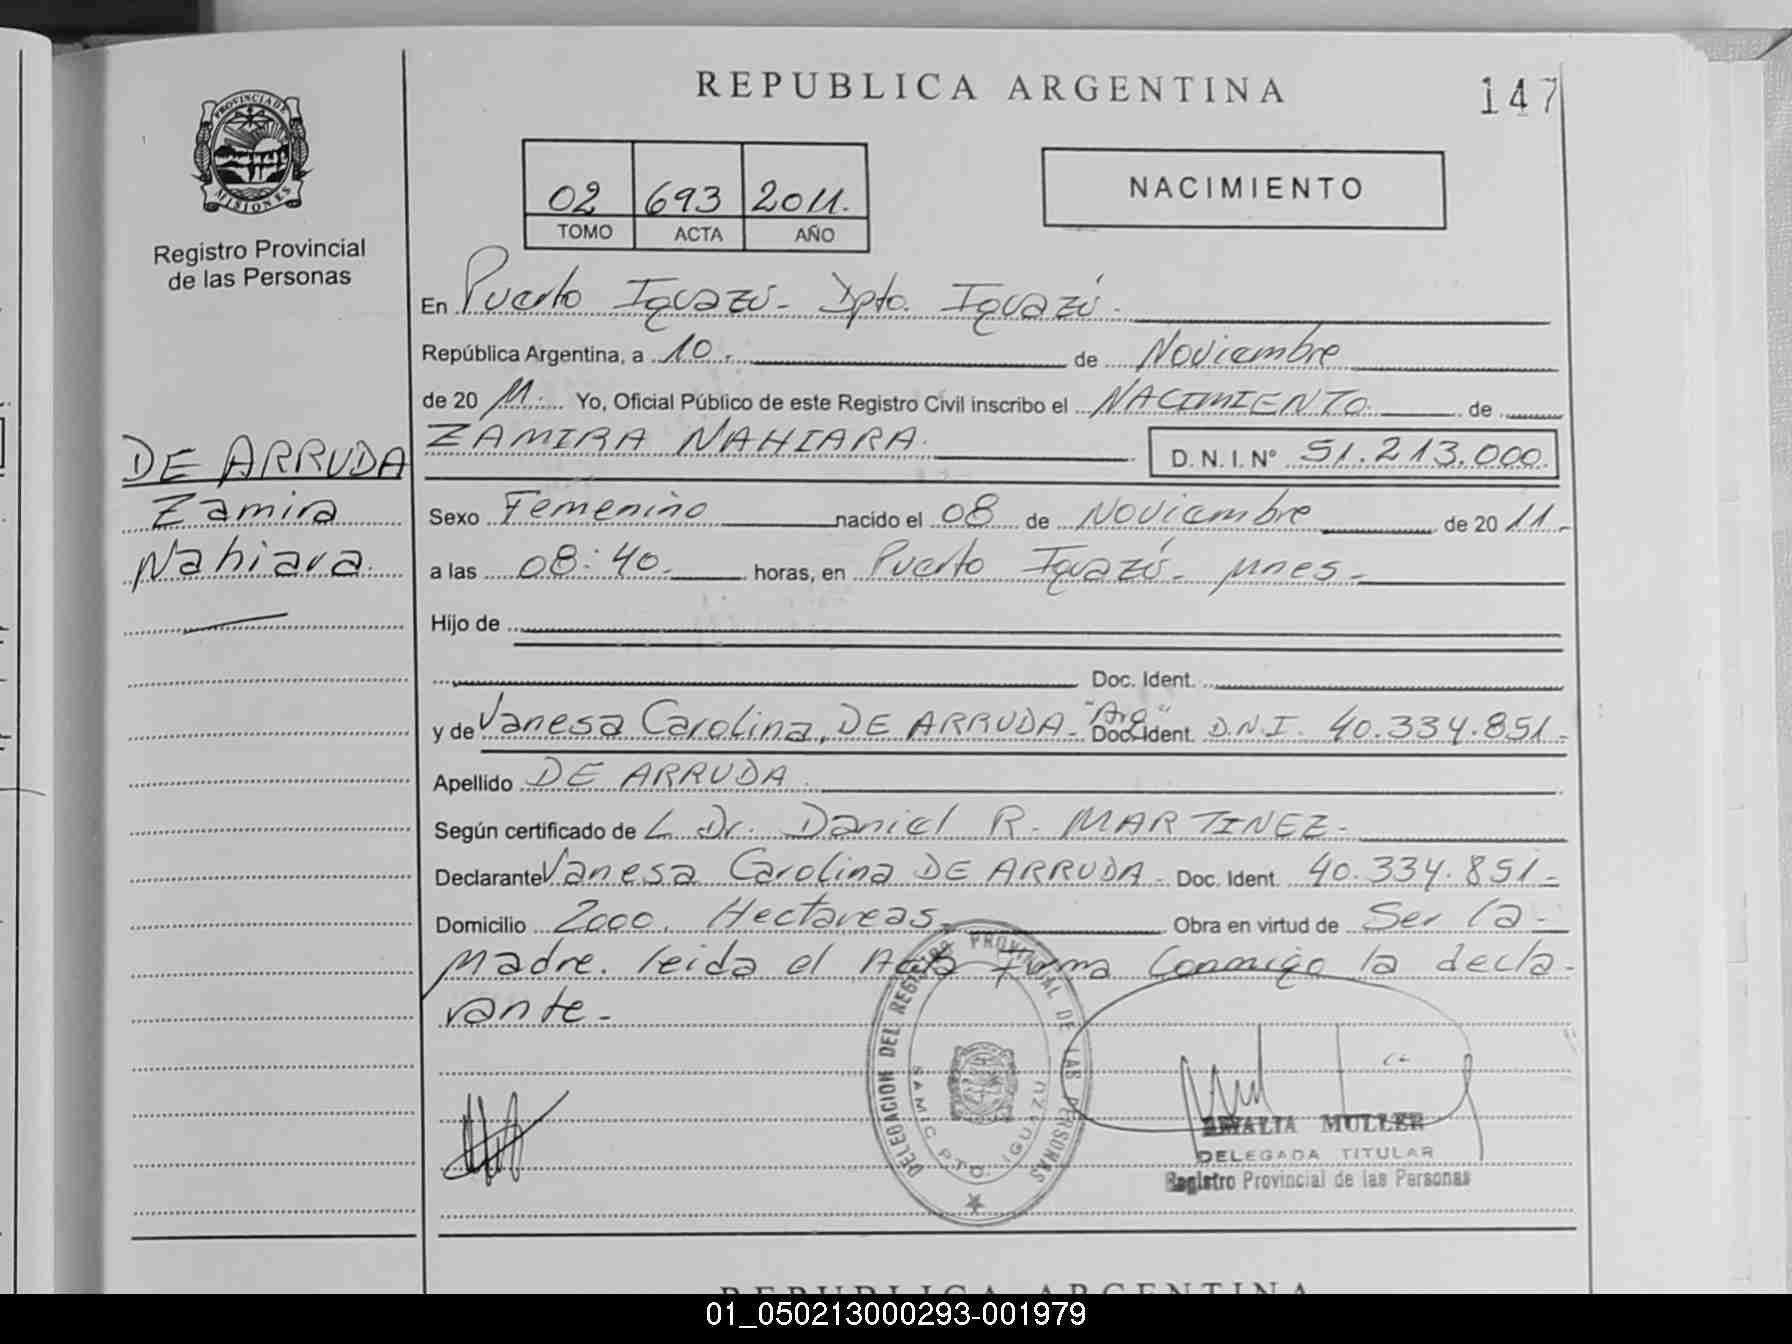 REPUBLICA ARGENTINA
147
PROVINCIA DE
MISIONES
Registro Provincial
de las Personas
02 693 2011.
TOMO ACTA AÑO
NACIMIENTO
En Puerto Iguazú - Dpto. Iguazú -
República Argentina, a 10. de Noviembre
de 20 11. Yo, Oficial Público de este Registro Civil inscribo el NACIMIENTO. de
DE ARRUDA
Zamira
Nahiara.
ZAMIRA NAHIARA. D.N.I.Nº 51.213.000
Sexo Femenino nacido el 08 de Noviembre de 20 11.-
a las 08:40. horas, en Puerto Iguazú - Mnes -
Hijo de
Doc. Ident.
y de Vanesa Carolina, DE ARRUDA - "Arg" Doc. Ident. D.N.I. 40.334.851 -
Apellido DE ARRUDA
Según certificado de L Dr. Daniel R. MARTINEZ -
Declarante Vanesa Carolina DE ARRUDA - Doc. Ident. 40.334.851 -
Domicilio 2000 Hectareas - Obra en virtud de Ser la -
Madre. leida el Acta firma Conmigo la decla-
rante -
DELEGACION DEL REGISTRO PROVINCIAL DE LAS PERSONAS
SAMIC PTO. IGUAZU
AMALIA MULLER
DELEGADA TITULAR
Registro Provincial de las Personas
REPUBLICA ARGENTINA
01_050213000293-001979